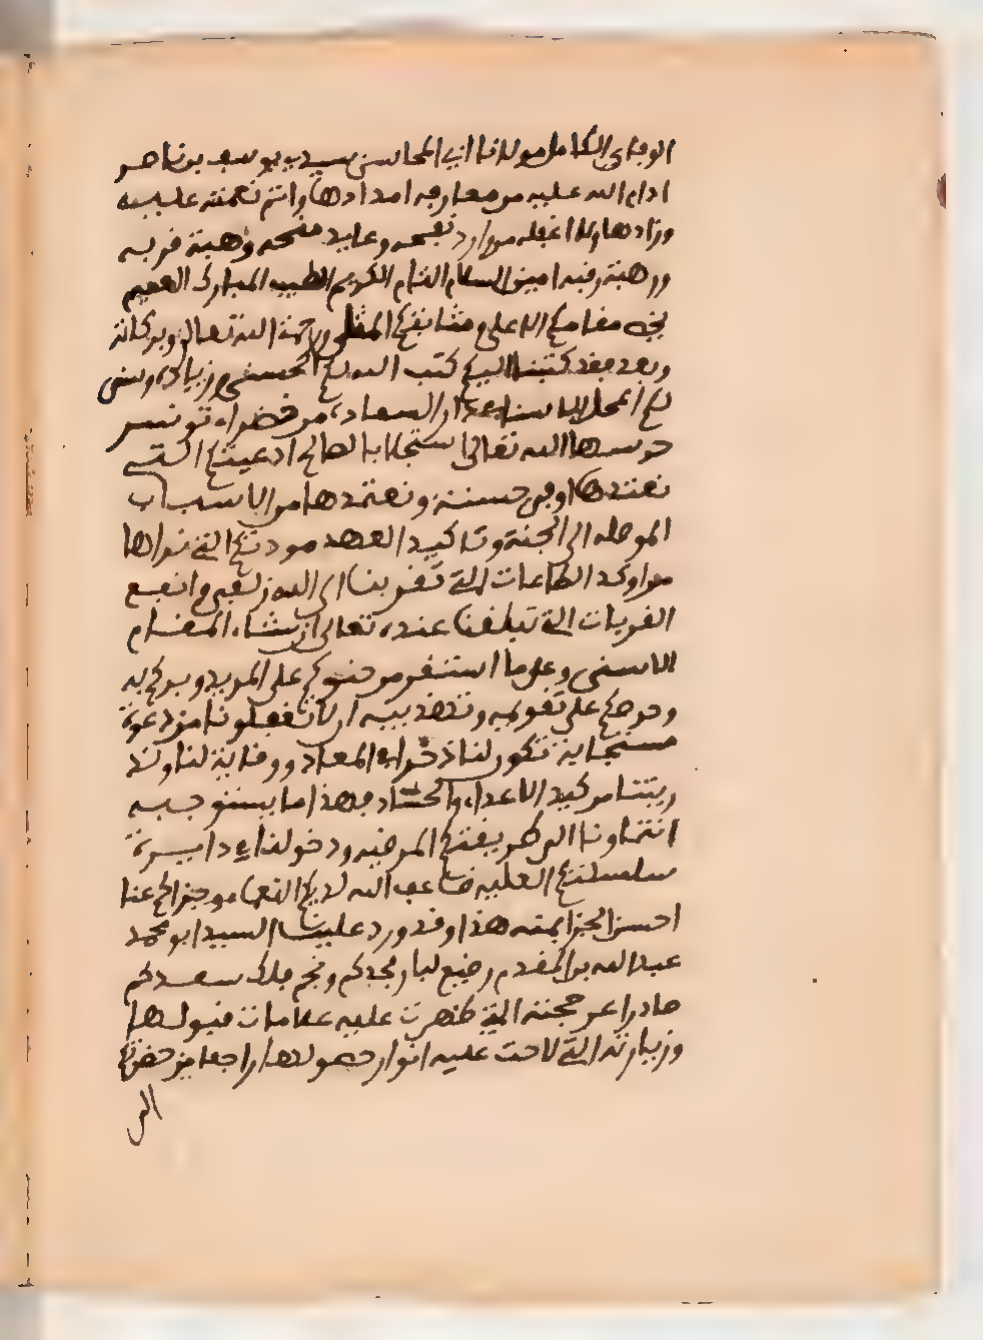 الوفاءى الكامل مولانا ابى المحاسن سيدى يوسف بن ناصر
ادام الله عليه من معارجه امدادها واتم نعمته عليه
وزادها ولا اغفله موارد نعمه وعايد منحه وهبة قربه
ورهبة رقبه امين السلام التام الكريم الطيب المبارك العميم
يخص مقامكم الاعلى ومثابتكم المثلى ورحمة الله تعالى وبركاته
وبعد فقد كتبنا اليكم كتب الله لكم الحسنى وزيادة وسنى
لكم المحل الاسنا بدار السعادة من خضراء تونس
حرسها الله تعالى استجلابا لصالح ادعيتكم التى
نعتدها اوفى حسنة ونعتمدها من الاسباب
الموصلة الى الجنة وتاكيد العهد مودتكم التى نراها
من اوكد الطاعات التى تقربنا الى الله زلفى وانفع
القربات التى تبلغنا عنده تعالى ان شاء المقام
الاسنى وعلى ما استقر من حنوكم على المريد وبركم به
وحرصكم على تقويمه وتهذيبه ان لا تغفلونا من دعوة
مستجابة تكون لنا ذخرا فى المعاد ووقاية لنا ولذ
ريتنا من كيد الاعداء والحساد فهذا ما يستوجبه
انتماونا الى طريقتكم المرضيه ودخولنا فى دايرة
سلسلتكم العليه ضاعف الله لديكم النعماء وجزاكم عنا
احسن الجزا بمنه هذا وقد ورد علينا السيد ابو محمد
عبد الله بن المقدم رضيع لبان مجدكم ونجم فلك سعدكم
صادرا عن حجته التى ظهرت عليه علامات قبولها
وزيارته التى لاحت عليه انوار حصولها راجعا من حضرتكم
الى